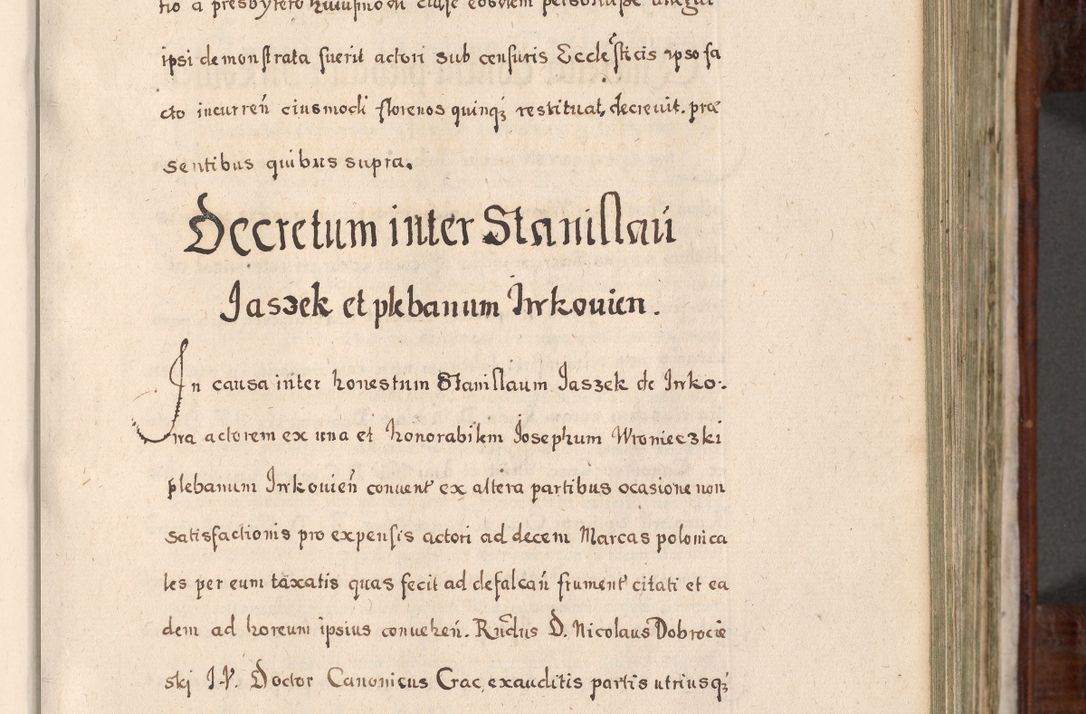 tio a presbytero huiusmodi eiusse eosdem
ipsi demonstrata fuerit actori sub censuris Eccle͠sticis ipso fa
cto incurren̄ eiusmodi florenos quinqꝫ restituat, decreuit. præ
sentibus quibus supra.
Decretum inter Stanislaū
Jaszek et plebanum Irrkouien.
In causa inter honestum Stanislaum Jaszek de Irrko:
wa actorem ex una et honorabilem Josephum Wronieczki
plebanum Irrkouien̄ conuent ex altera partibus ocasione non
satisfactionis pro expensis actori ad decem Marcas polonica
les per eum taxatis quas fecit ad defalcan̄ frument citati et ea
dem ad horeum ipsius conuehen̄. Rn͠dus D. Nicolaus Dobrocie
ski I.V. Doctor Canonicus Crac, exauditis partis utriusqꝫ